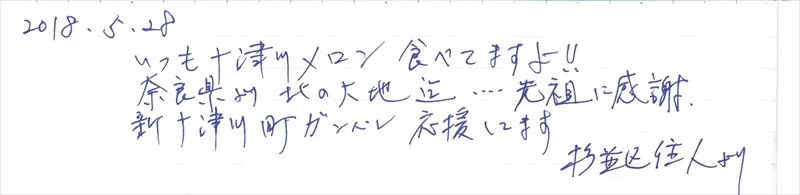 2018.5.28
いつも十津川メロン食べてますよ!!
奈良県より北の大地迄....先祖に感謝.
新十津川町ガンバレ 応援してます
杉並区住人より